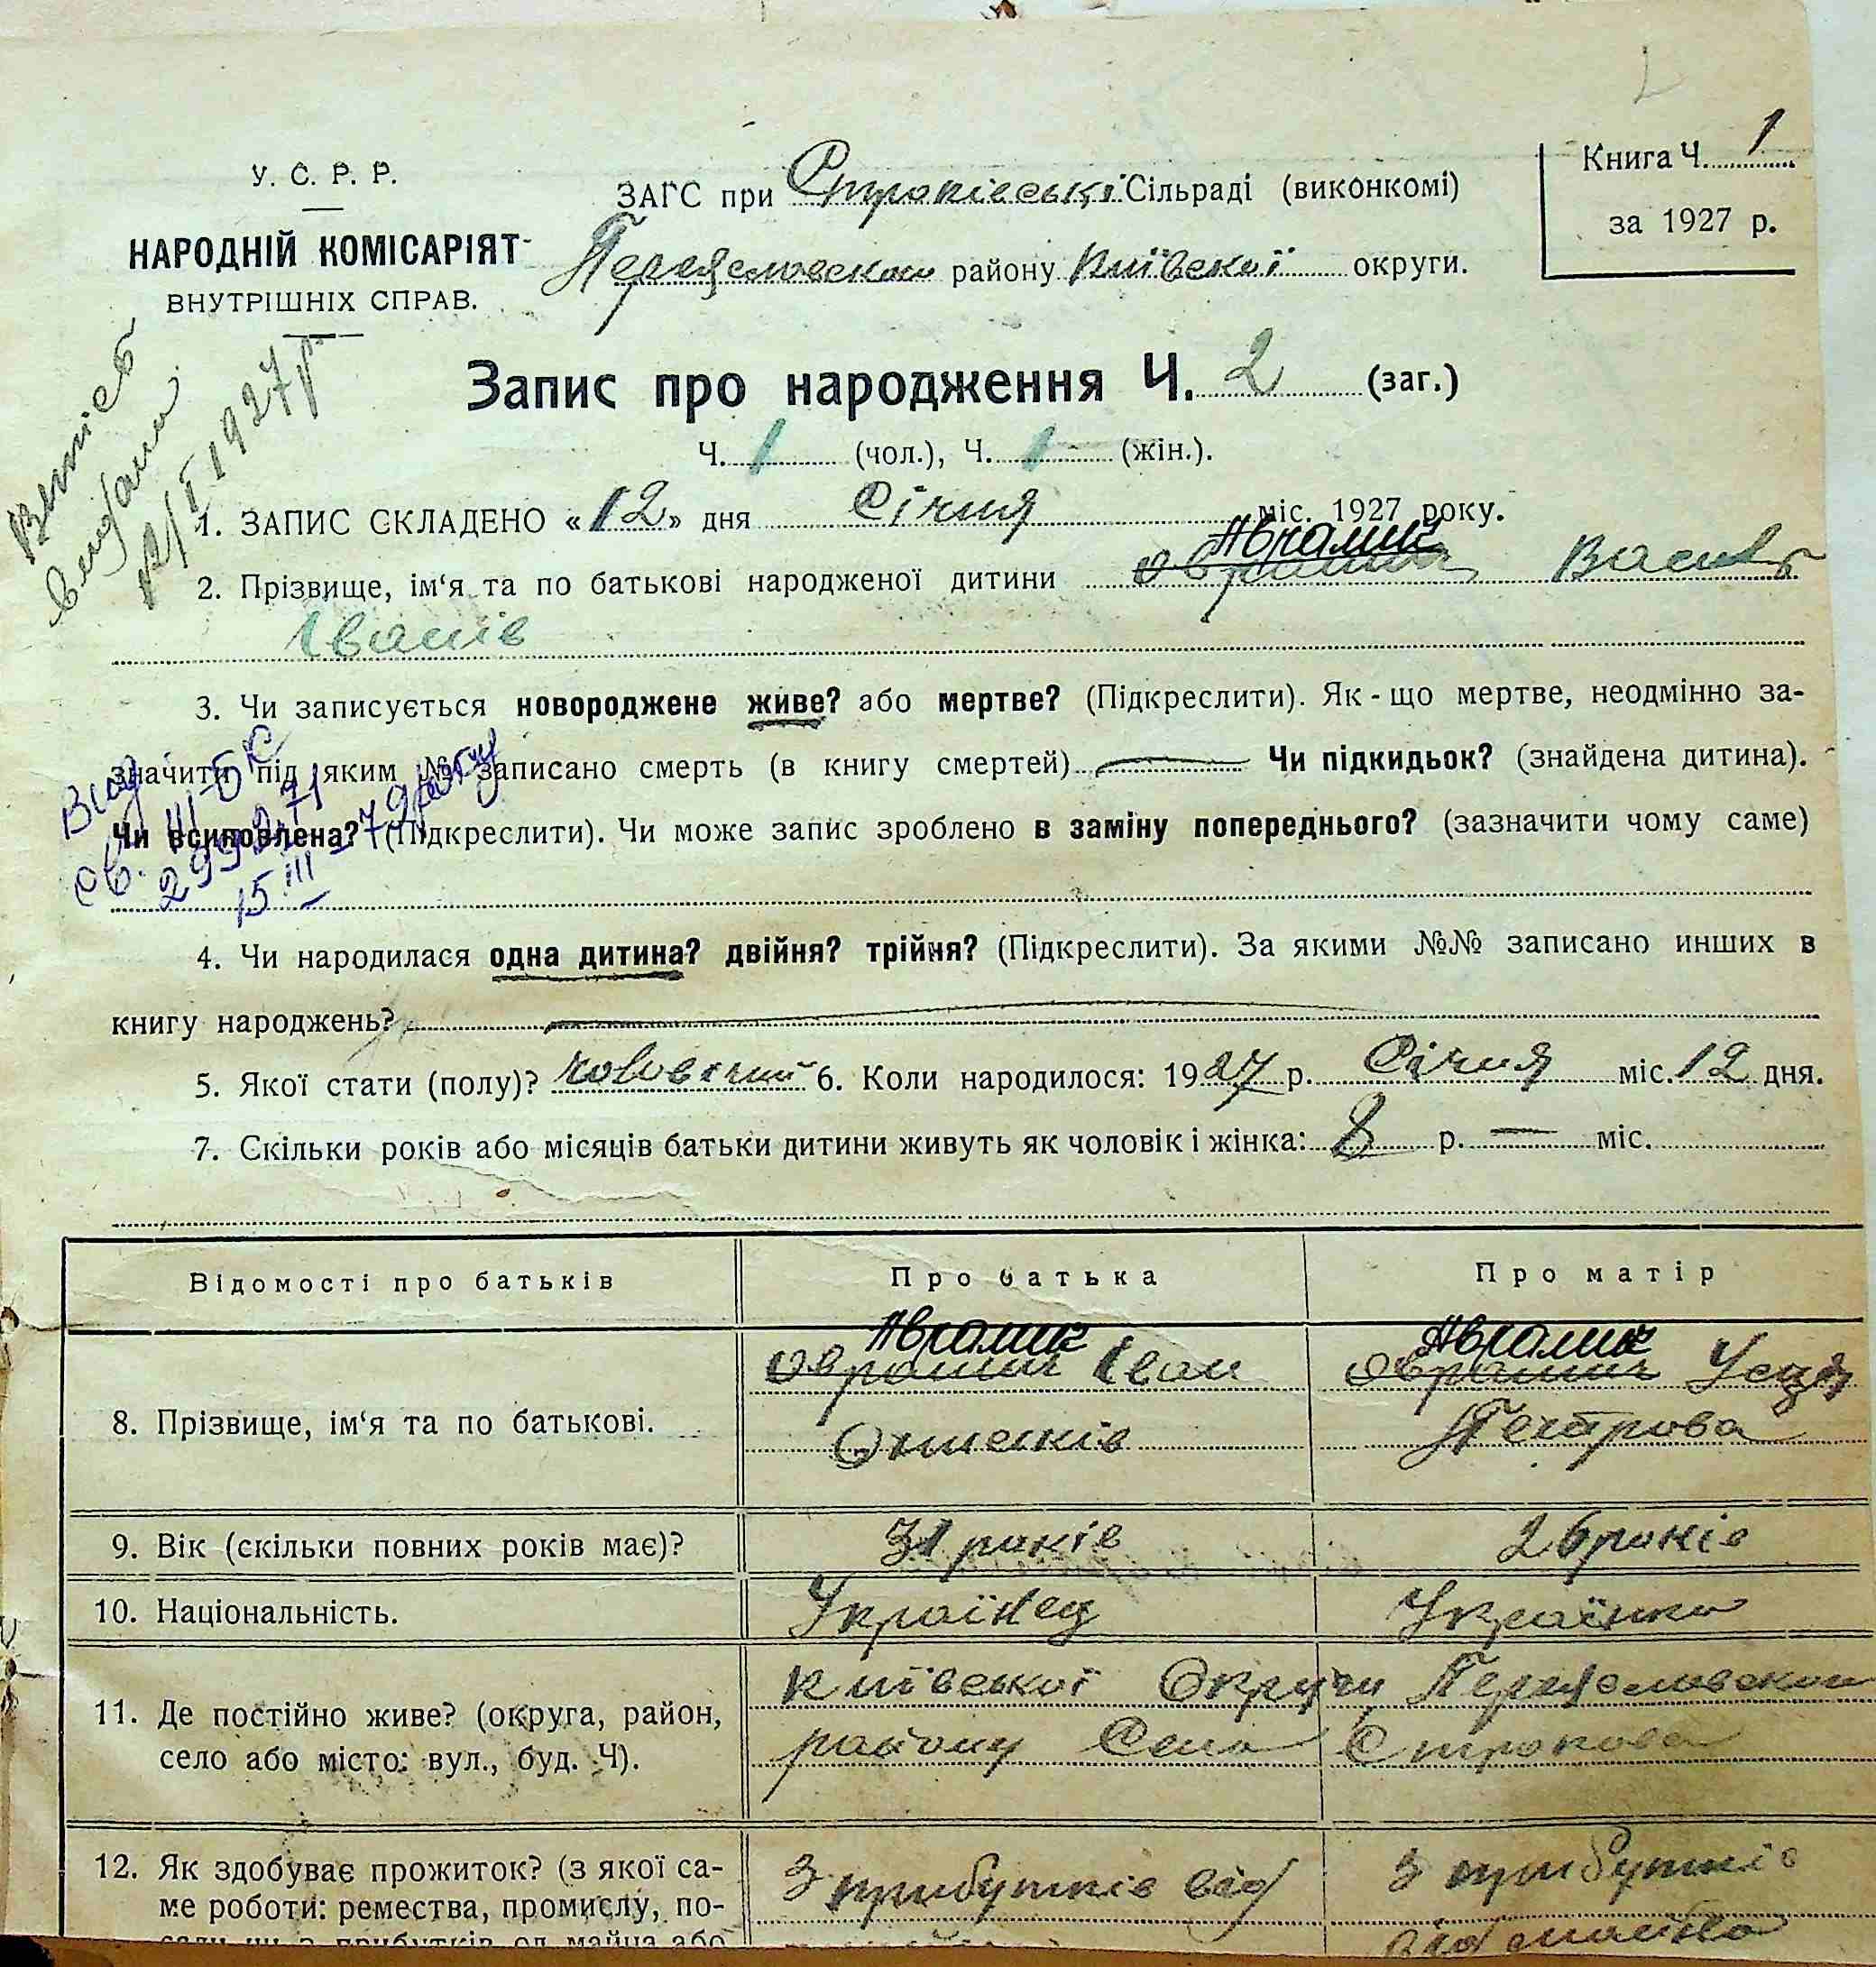 У. С. Р. Р.
НАРОДНІЙ КОМІСАРІЯТ
ВНУТРІШНІХ СПРАВ.
ЗАГС при Строківські Сільраді (виконкомі)
Переяславском району Київскої округи.
Книга Ч. 1
за 1927 р.
Витяг
видали
12/I 1927 р
Запис про народження Ч. 2 (заг.)
Ч. 1 (чол.), Ч. 1 (жін.).
1. ЗАПИС СКЛАДЕНО «12» дня Січня міс. 1927 року.
Аврамик
2. Прізвище, ім‘я та по батькові народженої дитини Василь
Іванів
3. Чи записується новороджене живе? або мертве? (Підкреслити). Як-що мертве, неодмінно за-
значити під яким № записано смерть (в книгу смертей) Чи підкидьок? (знайдена дитина).
Чи всиновлена? (Підкреслити). Чи може запис зроблено в заміну попереднього? (зазначити чому саме)
Вид
св. III-БК
15 III – 79
4. Чи народилася одна дитина? двійня? трійня? (Підкреслити). За якими №№ записано инших в
книгу народжень?
5. Якої стати (полу)? чоловічий 6. Коли народилося: 1927 р. Січня міс. 12 дня.
7. Скільки років або місяців батьки дитини живуть як чоловік і жінка: 8 р. — міс.
Відомості про батьків Про батька Про матір
Аврамик Аврамик
8. Прізвище, ім‘я та по батькові. Іван
Петрова
9. Вік (скільки повних років має)? 31 років 26 років
10. Національність. Українец Українка
11. Де постійно живе? (округа, район,
село або місто: вул., буд. Ч).
Київської Округи Переяславском
району Село Строкова
12. Як здобуває прожиток? (з якої са-
ме роботи: ремества, промислу, по-
сади чи з прибутків од майна або
З прибутків від
З прибутків
від майна